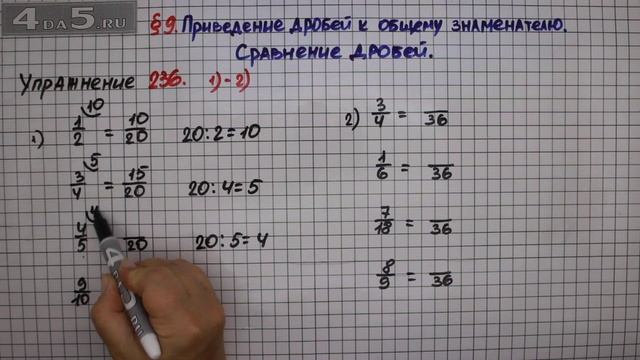 4DA5.RU
§9. Приведение дробей к общему знаменателю.
Сравнение дробей.
Упражнение 236. 1)-2)
1) 1/2 10 = 10/20 20:2=10
3/4 5 = 15/20 20:4=5
4/5 4 20 20:5=4
9/10
2) 3/4 = 36
1/6 = 36
7/18 = 36
8/9 = 36
4DA5.RU